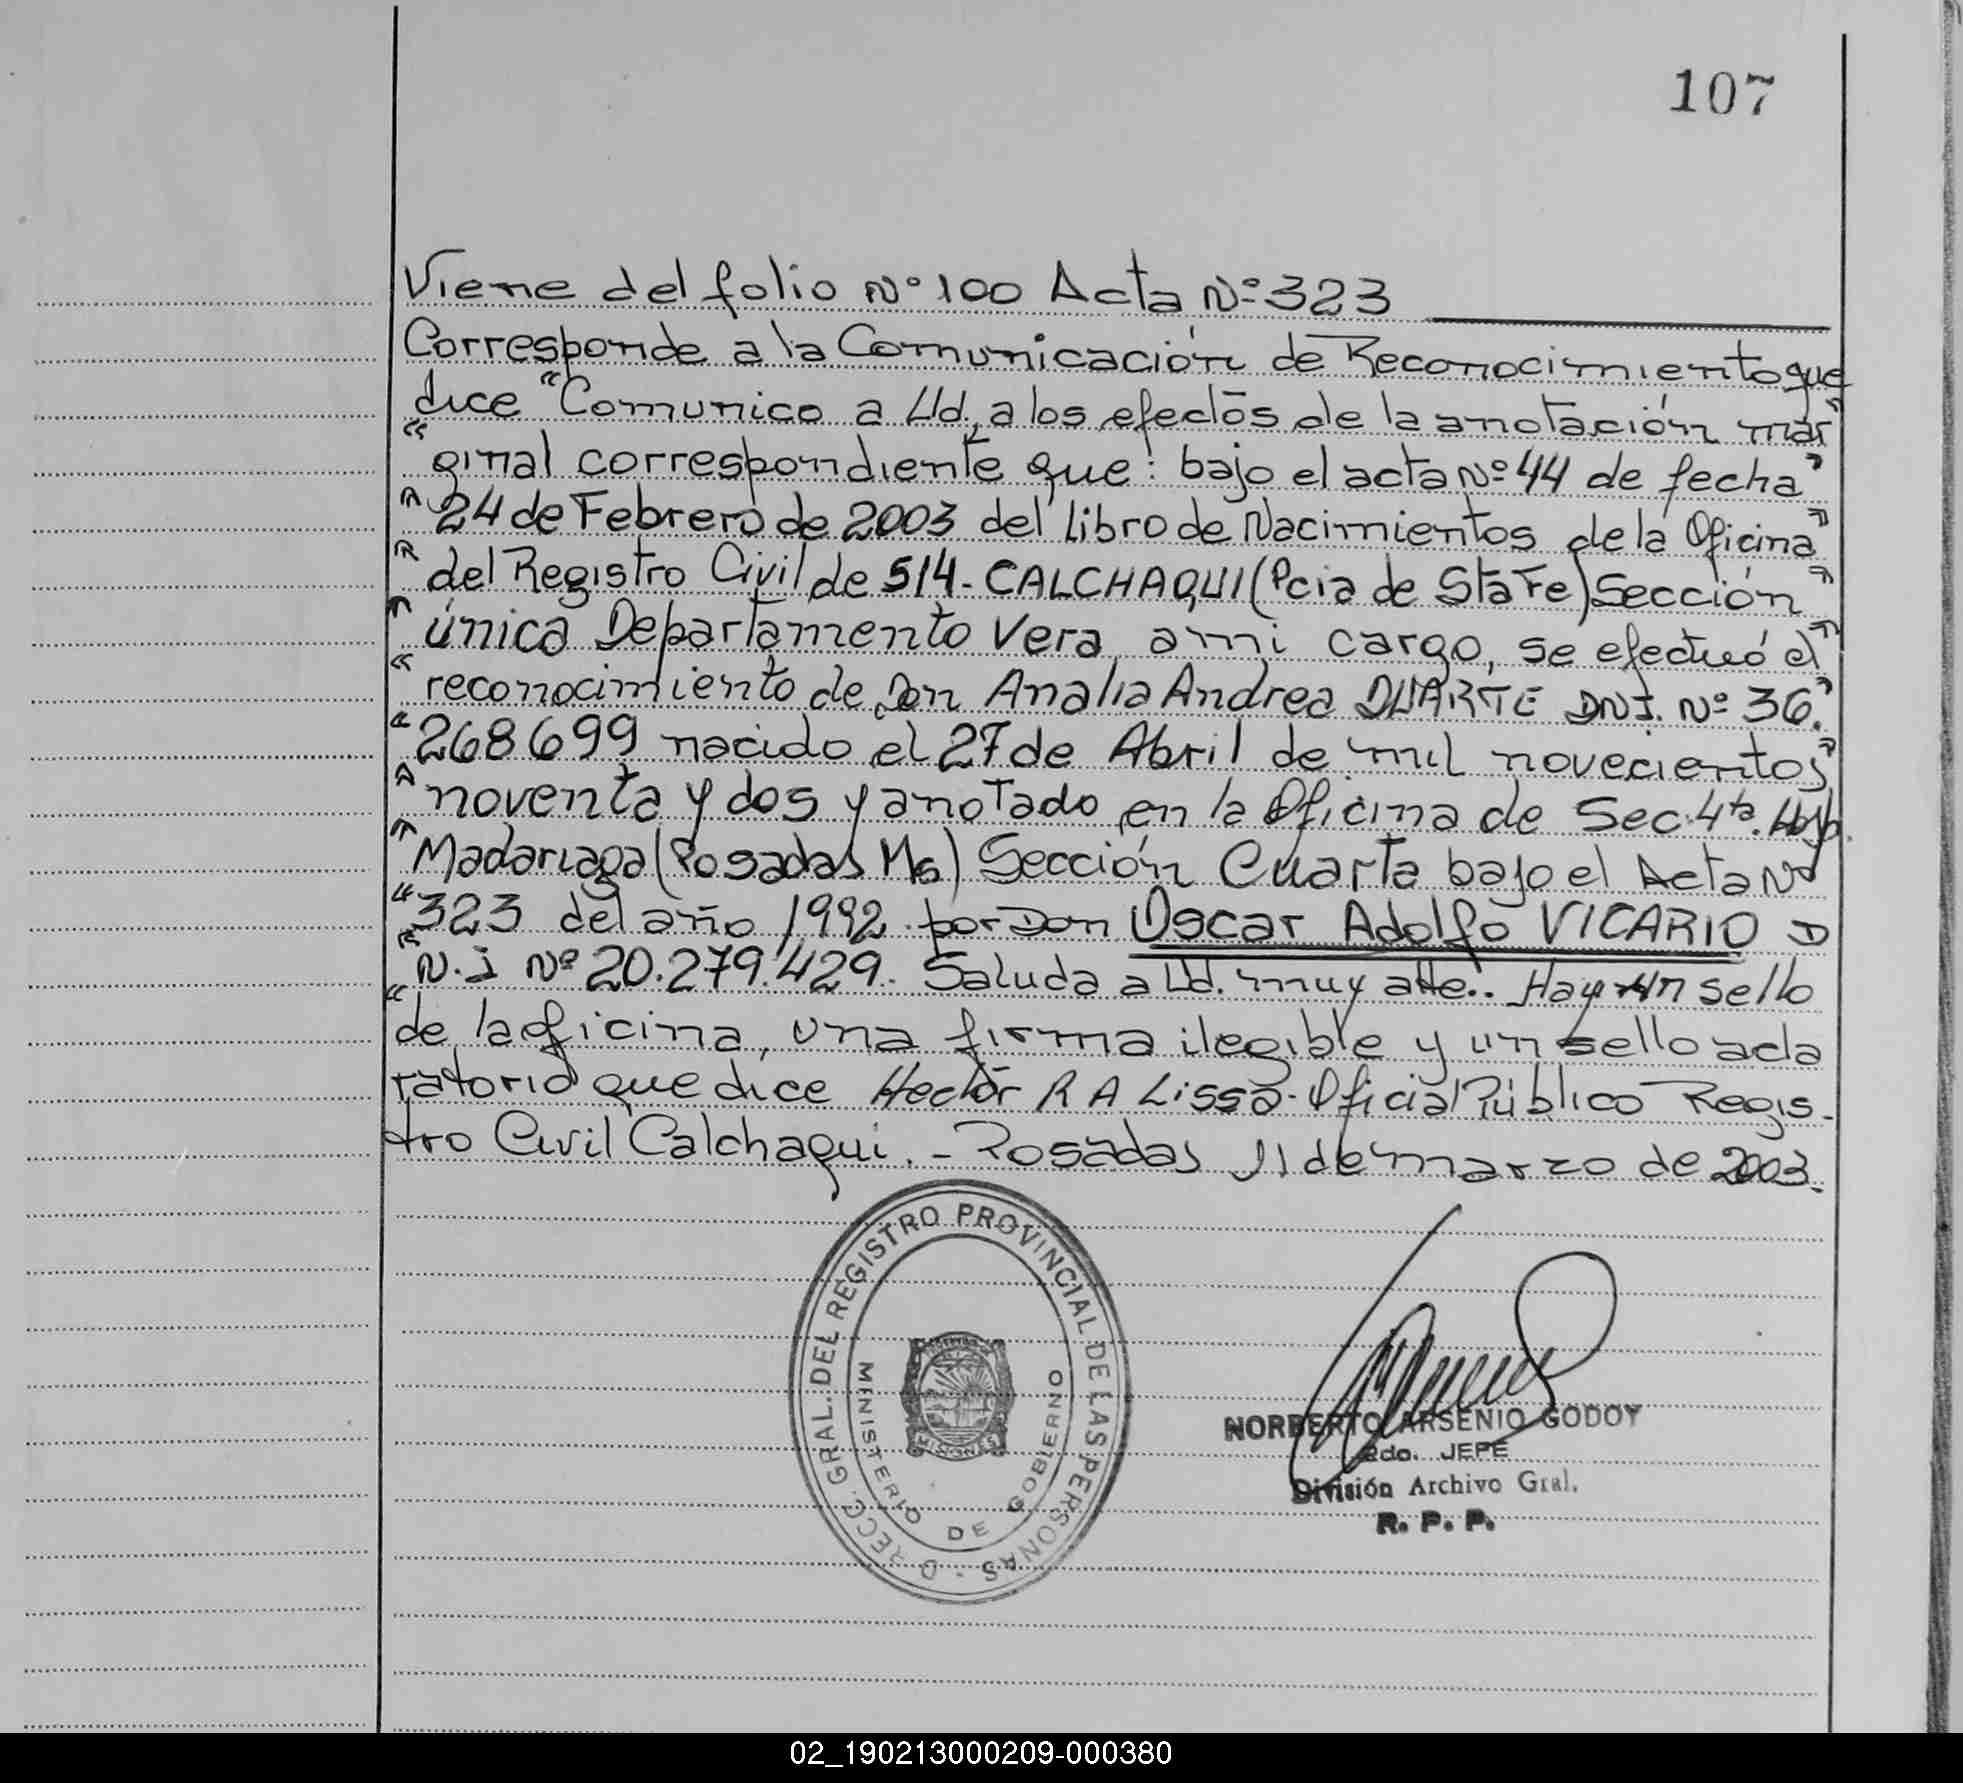 107
Viene del folio Nº 100 Acta Nº 323
Corresponde a la Comunicación de Reconocimiento que
dice "Comunico a Ud. a los efectos de la anotación mar"
"ginal correspondiente que: bajo el acta Nº 44 de fecha"
"24 de Febrero de 2003 del Libro de Nacimientos de la Oficina"
"del Registro Civil de 514-CALCHAQUI (Pcia de Sta Fe) Sección"
"única Departamento Vera a mi cargo, se efectuó el"
"reconocimiento de Don Analia Andrea DUARTE DNI. Nº 36."
"268699 nacido el 27 de Abril de mil novecientos"
"noventa y dos y anotado en la Oficina de Sec. 4ta.
"Madariaga (Posadas Ms) Sección Cuarta bajo el Acta Nº
"323 del año 1992 por Don Oscar Adolfo VICARIO D
"N.I Nº 20.279.429. Saluda a Ud. muy atte.. Hay un sello
"de la oficina, una firma ilegible y un sello acla
ratorio que dice Hector R A Lissa-Oficial Público Regis-
tro Civil Calchaqui.- Posadas 11 de marzo de 2003.
D RECC. GRAL. DEL REGISTRO PROVINCIAL DE LAS PERSONAS.
MINISTERIO DE GOBIERNO
MISIONES
NORBERTO ARSENIO GODOY
2do. JEFE
División Archivo Gral.
R. P. P.
02_190213000209-000380